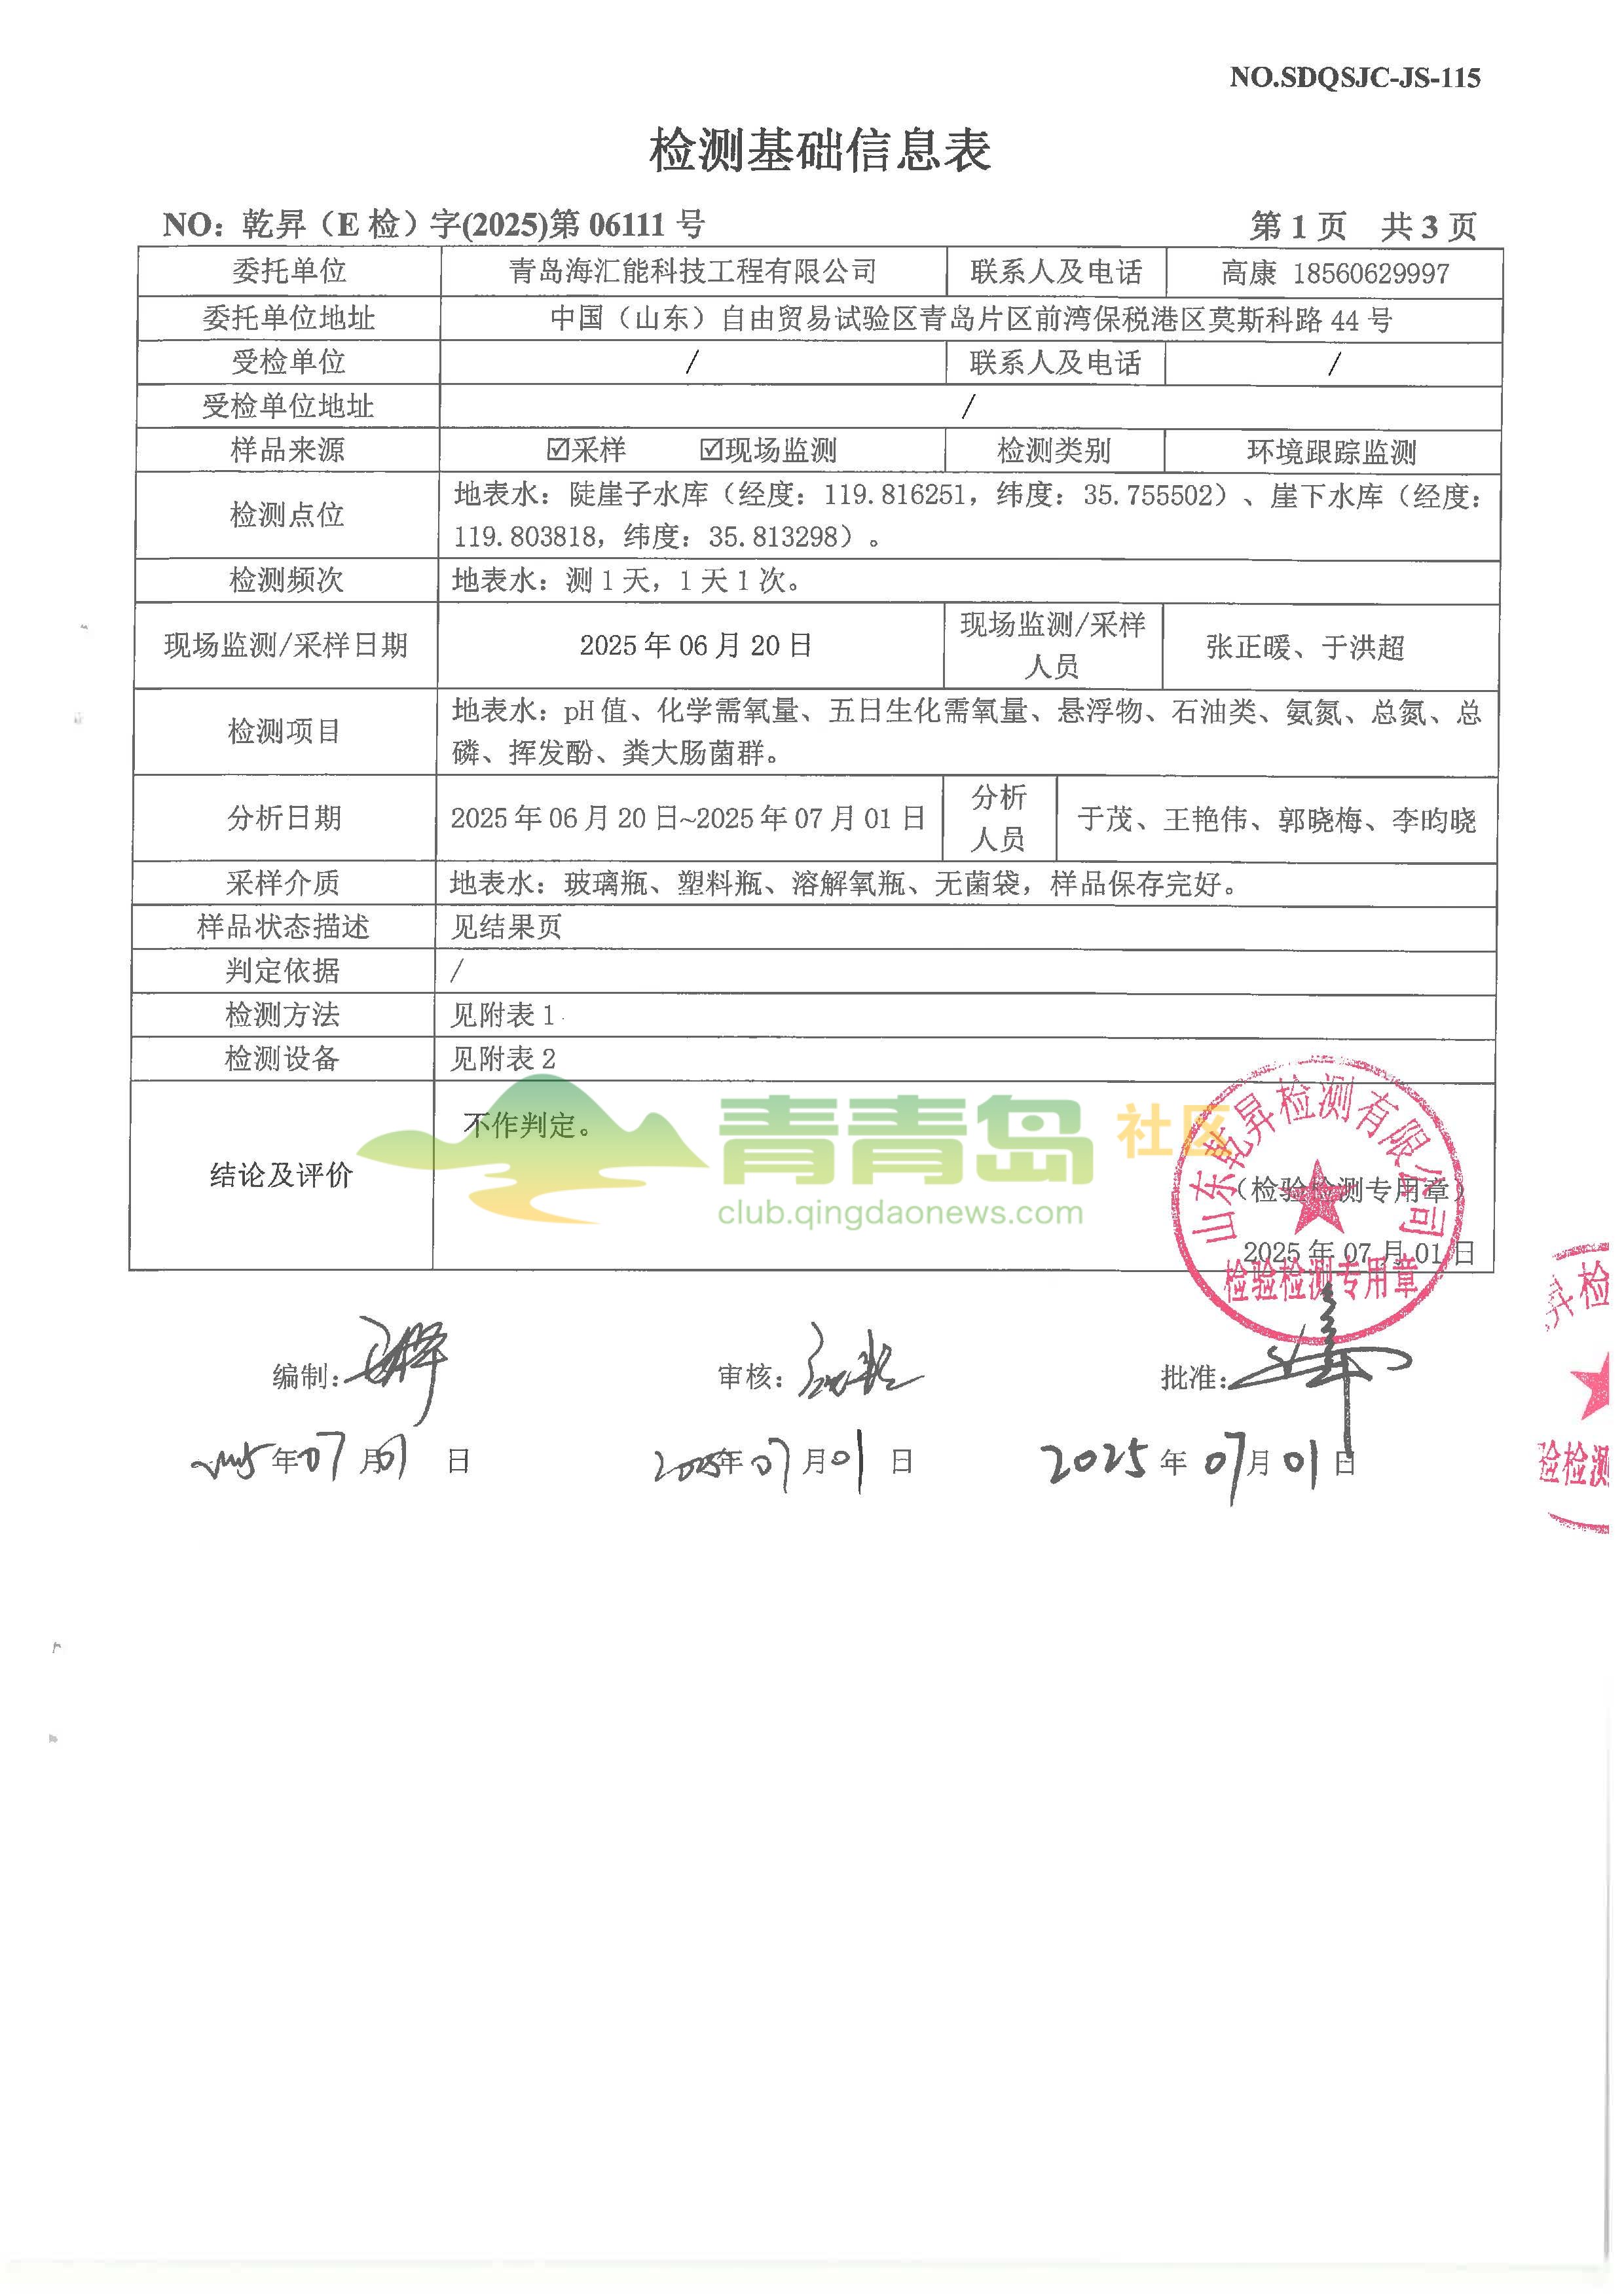 NO.SDQSJC-JS-115
检测基础信息表
NO：乾昇（E 检）字(2025)第 06111 号
第 1 页 共 3 页
委托单位 青岛海汇能科技工程有限公司 联系人及电话 高康 18560629997
委托单位地址 中国（山东）自由贸易试验区青岛片区前湾保税港区莫斯科路 44 号
受检单位 / 联系人及电话 /
受检单位地址 /
样品来源 ☑采样 ☑现场监测 检测类别 环境跟踪监测
检测点位 地表水：陡崖子水库（经度：119.816251，纬度：35.755502）、崖下水库（经度：
119.803818，纬度：35.813298）。
检测频次 地表水：测 1 天，1 天 1 次。
现场监测/采样日期 2025 年 06 月 20 日 现场监测/采样
人员 张正暖、于洪超
检测项目 地表水：pH 值、化学需氧量、五日生化需氧量、悬浮物、石油类、氨氮、总氮、总
磷、挥发酚、粪大肠菌群。
分析日期 2025 年 06 月 20 日~2025 年 07 月 01 日 分析
人员 于茂、王艳伟、郭晓梅、李昀晓
采样介质 地表水：玻璃瓶、塑料瓶、溶解氧瓶、无菌袋，样品保存完好。
样品状态描述 见结果页
判定依据 /
检测方法 见附表 1
检测设备 见附表 2
结论及评价 不作判定。
青青岛 社区
club.qingdaonews.com
山东乾昇检测有限公司
（检验检测专用章）
2025 年 07 月 01 日
检验检测专用章
昇检
验检测
编制：
审核：
批准：
2025 年 07 月 01 日
2025 年 07 月 01 日
2025 年 07 月 01 日